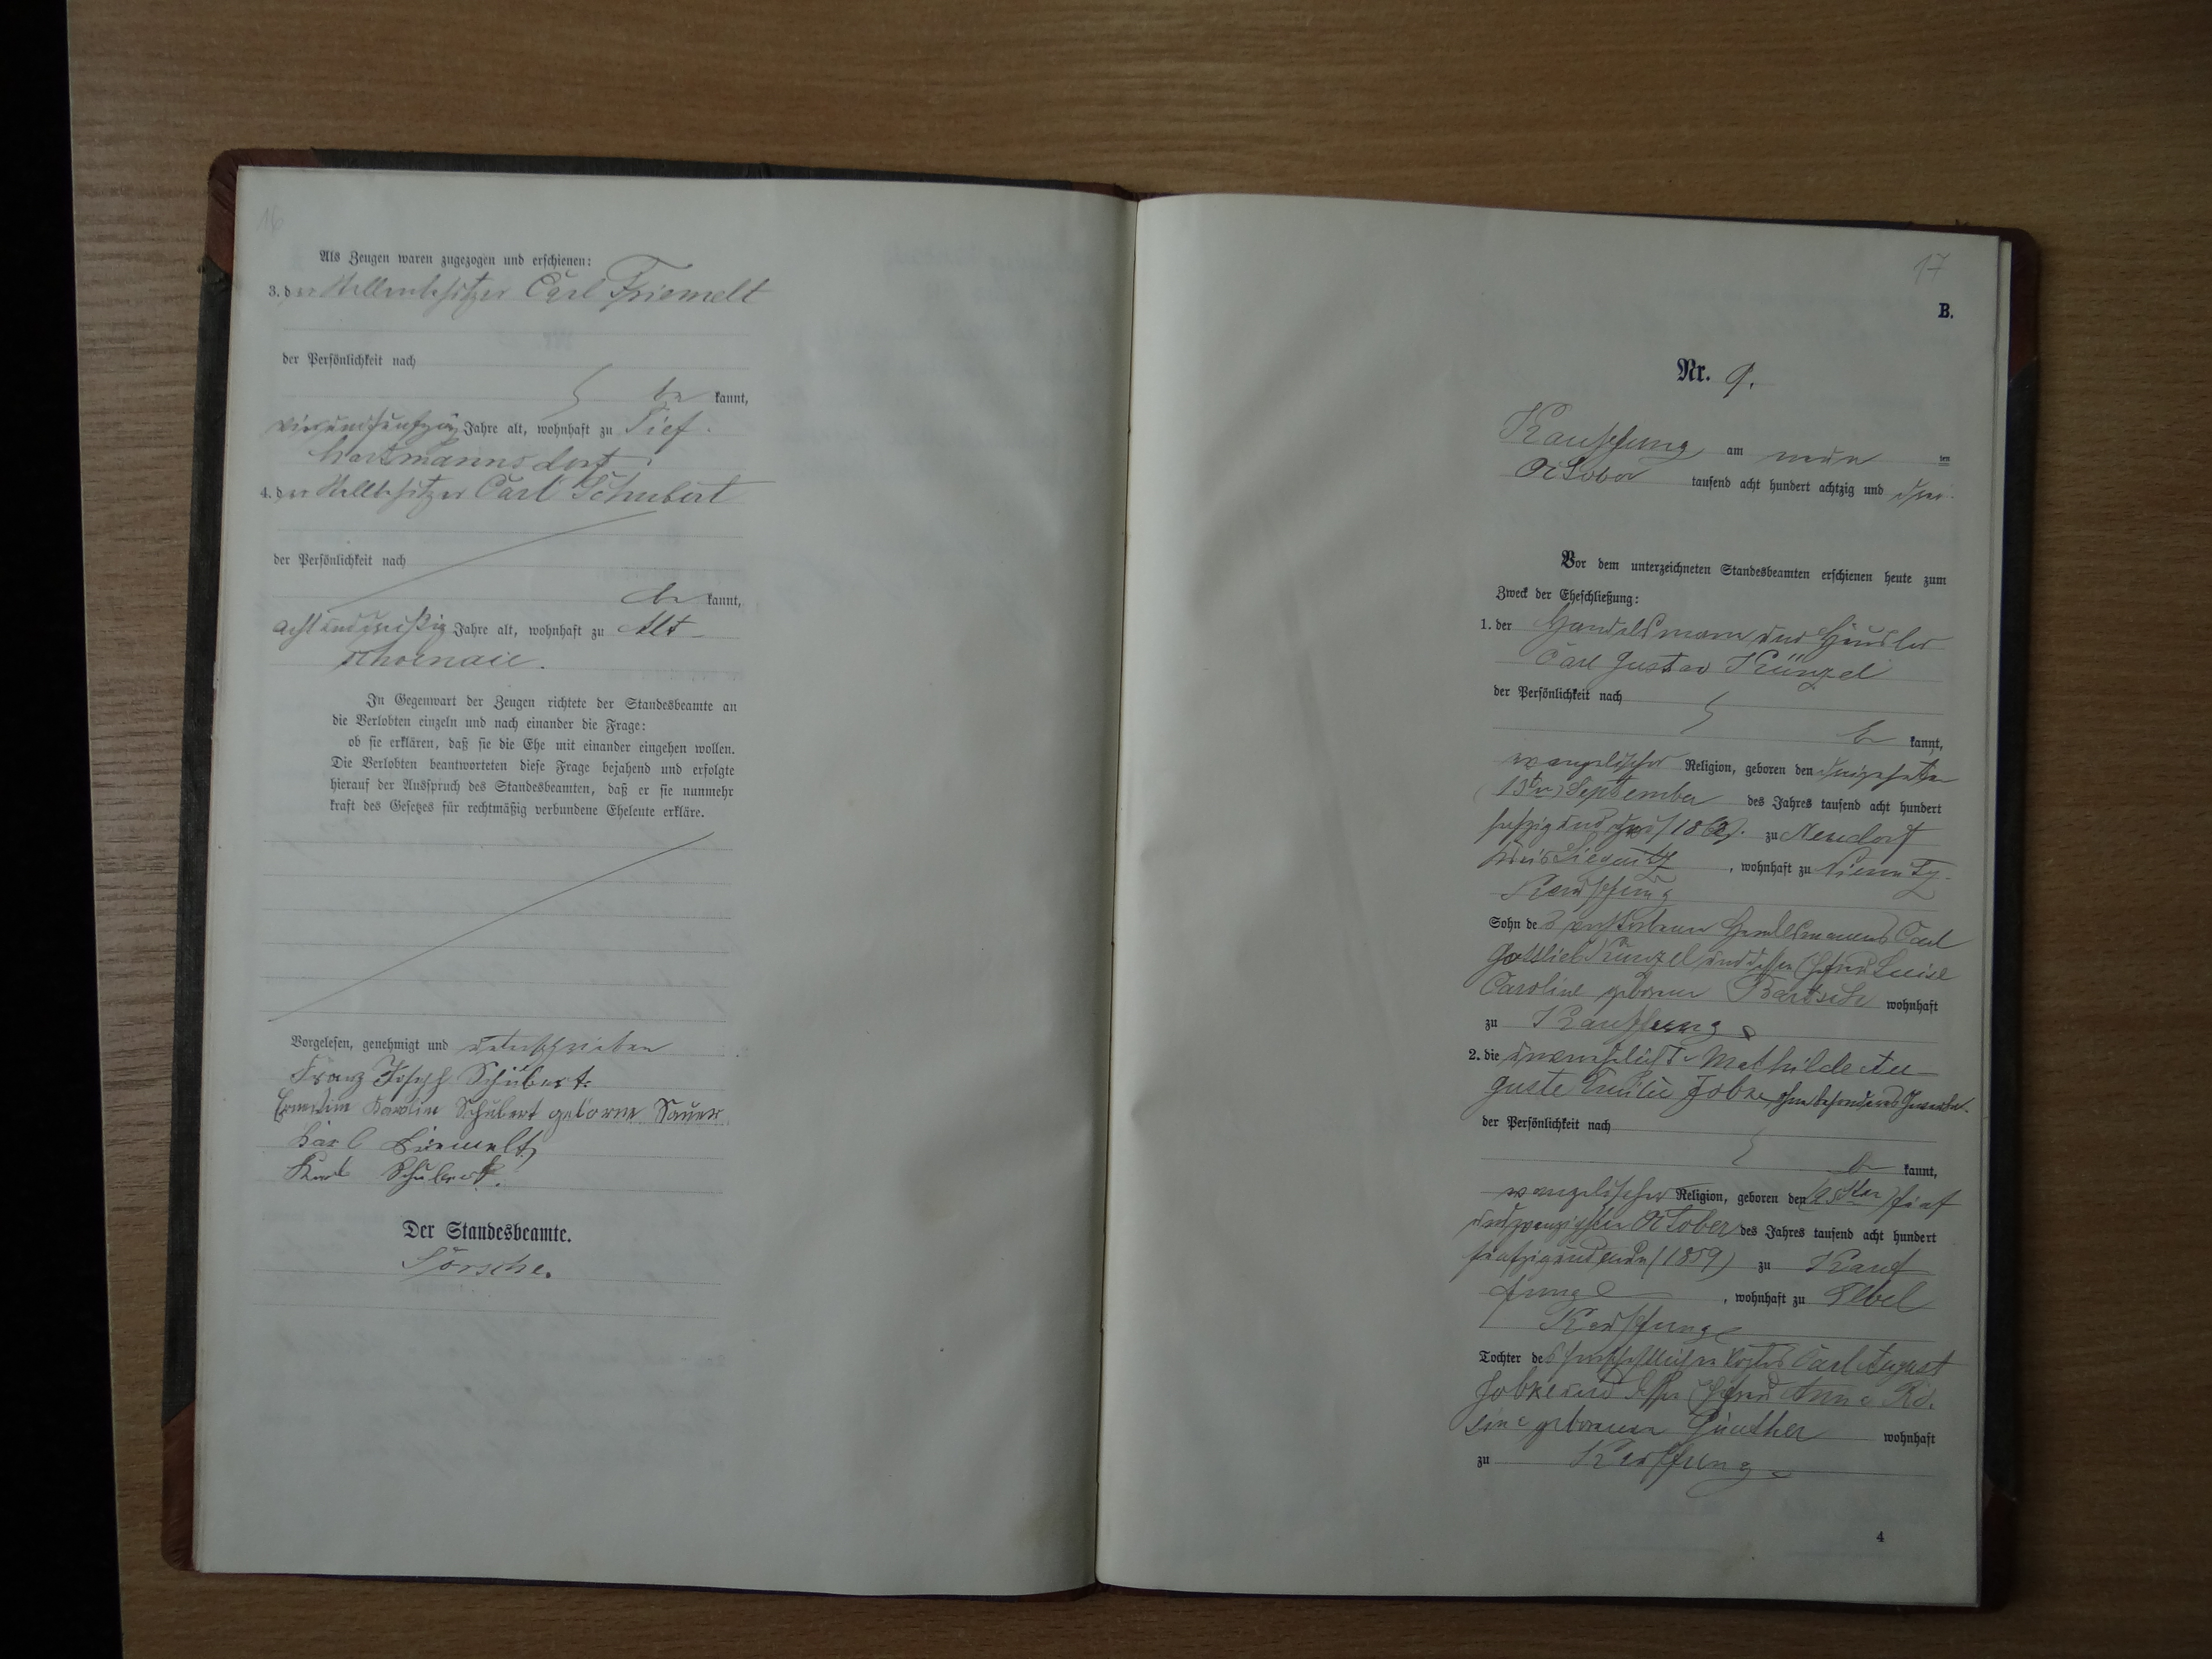 16
Als Zeugen waren zugezogen und erschienen:
3. der Stellenbesitzer Carl Friemelt
der Persönlichkeit nach
be kannt,
Jahre alt, wohnhaft zu Tief-
hartmannsdorf;
4. der Stellbesitzer Carl Schubert
der Persönlichkeit nach
be kannt,
achtunddreißig Jahre alt, wohnhaft zu Alt-
schoenau.
In Gegenwart der Zeugen richtete der Standesbeamte an
die Verlobten einzeln und nach einander die Frage:
ob sie erklären, daß sie die Ehe mit einander eingehen wollen.
Die Verlobten beantworteten diese Frage bejahend und erfolgte
hierauf der Ausspruch des Standesbeamten, daß er sie nunmehr
kraft des Gesetzes für rechtmäßig verbundene Eheleute erkläre.
Vorgelesen, genehmigt und unterschrieben
Franz Joseph Schubert.
Karolin Schubert geborne Sauer
Karl Friemelt
Karl Schubert.
Der Standesbeamte.
17
B.
Nr. 9.
Kauffung am neun ten
October tausend acht hundert achtzig und drei.
Vor dem unterzeichneten Standesbeamten erschienen heute zum
Zweck der Eheschließung:
1. der Handelsmann und Häusler
Carl Gustav Künzel
der Persönlichkeit nach
be kannt,
evangelischer Religion, geboren den dreizehnten
(13ten) September des Jahres tausend acht hundert
sechzig und zu Neudorf
Kreis Liegnitz, wohnhaft zu
Kauffung
Sohn des verstorbenen Handelsmannes Carl
Gottlieb Künzel und dessen Ehefrau Luise
Caroline geborenen Bartsch wohnhaft
zu Kauffung
2. die unverehelichte Mathilde Au-
guste Emilie Jobke, ohne besonderes Gewerbe.
der Persönlichkeit nach
be kannt,
evangelischer Religion, geboren den (25sten) fünf
undzwanzigsten October des Jahres tausend acht hundert
fünfzig und neun (1859) zu Kauf
fung, wohnhaft zu Elbel
Kauffung
Tochter des herrschaftlichen Vogtes Carl August
Jobke und dessen Ehefrau Anne Ro-
sine geborenen Günther wohnhaft
zu Kauffung
4